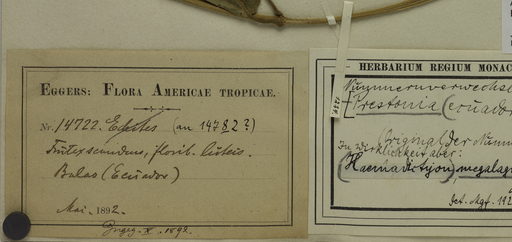 EGGERS: FLORA AMERICAE TROPICAE.
Nr. 14722. Echites (an 14782?)
Frutex scandens, florib. luteis.
Balao (Ecuador)
Mai. 1892.
Ingeg. X. 1892.
HERBARIUM REGIUM MONAC
Nummernverwechsl
Prestonia (ecuador
(Original der Numm
In Wirklichkeit aber:
(Haemadictyon) megalag
det. Mgf. 192